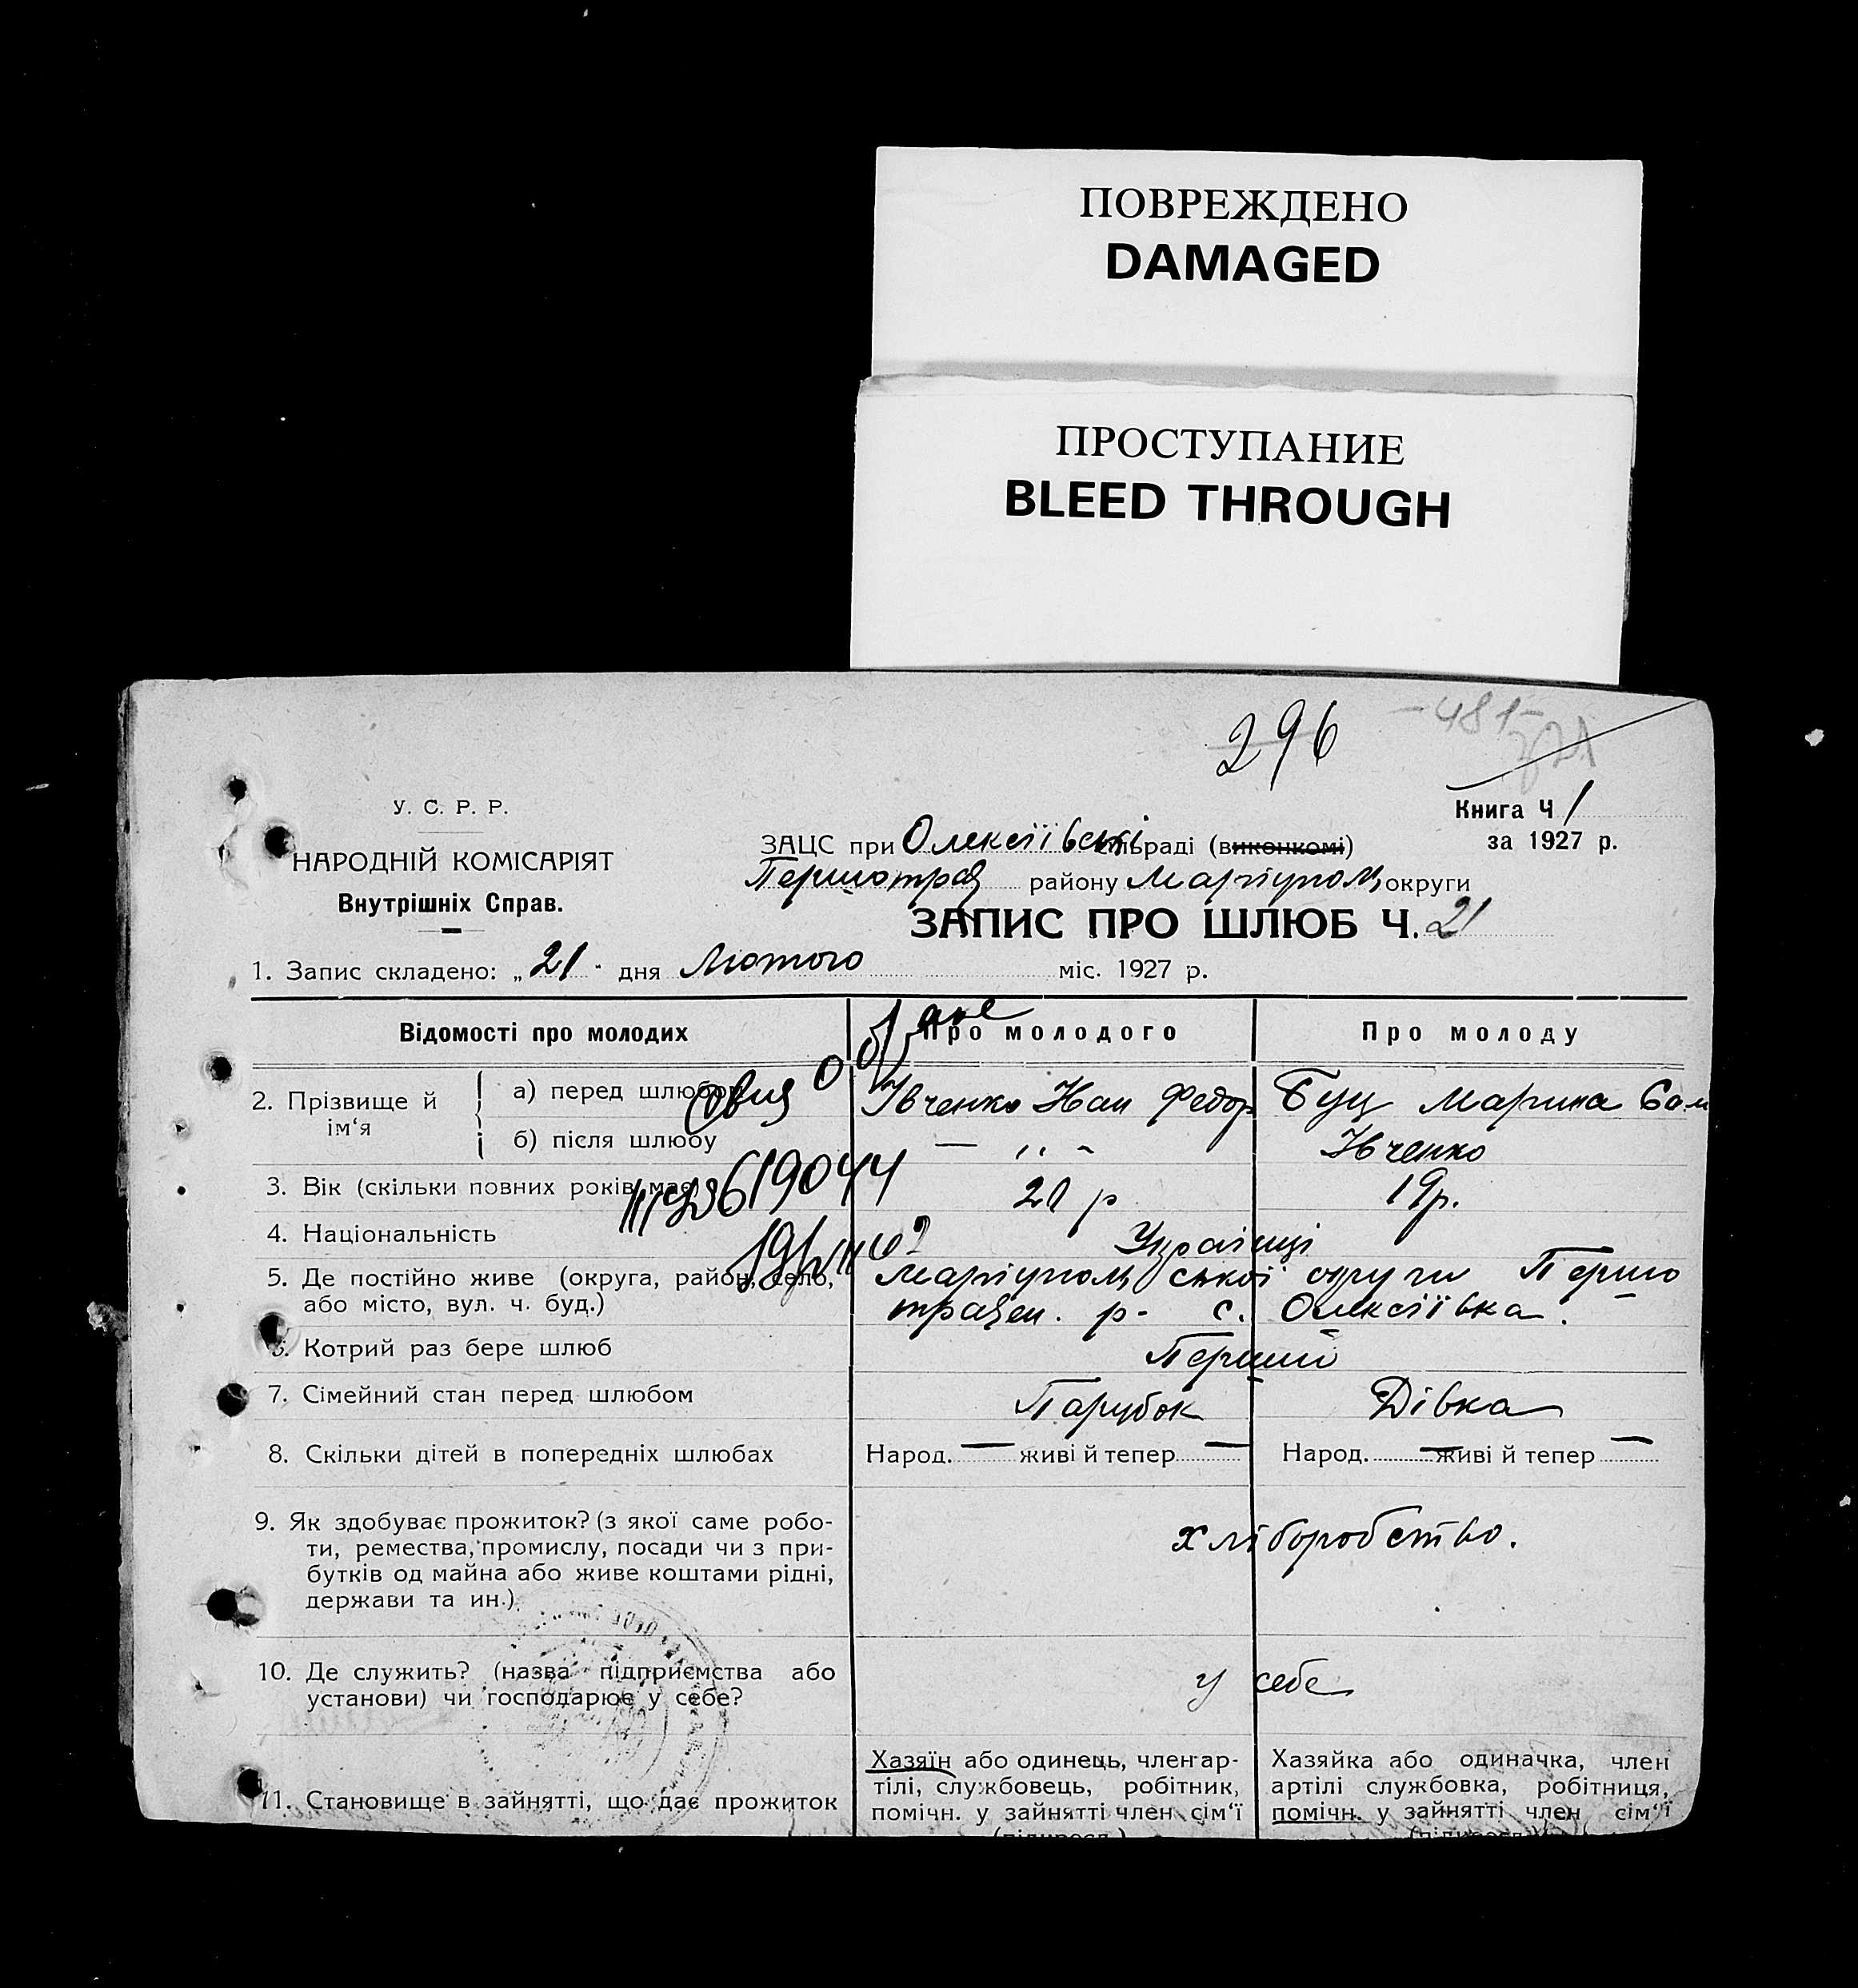 ПОВРЕЖДЕНО
DAMAGED
ПРОСТУПАНИЕ
BLEED THROUGH
296
-481-
У. С. Р. Р.
НАРОДНІЙ КОМІСАРІЯТ
Внутрішніх Справ.
Книга Ч 1
за 1927 р.
ЗАЦС при Олексіївській сільраді (виконкомі)
Першотрав району Маріупол округи
ЗАПИС ПРО ШЛЮБ Ч. 21
1. Запис складено: „21" дня Лютого міс. 1927 р.
Відомості про молодих Про молодого Про молоду
2. Прізвище й ім‘я
а) перед шлюбом Івченко Федор Буц Марина
б) після шлюбу — ,, - Івченко
3. Вік (скільки повних років має) 20 р 19р.
4. Національність Українці
5. Де постійно живе (округа, район, село, Маріупольської округи Першо
або місто, вул. ч. буд.) травен. р- с. Олексіївка.
6. Котрий раз бере шлюб Перший
7. Сімейний стан перед шлюбом Парубок Дівка
8. Скільки дітей в попередніх шлюбах Народ. — живі й тепер — Народ. — живі й тепер —
9. Як здобуває прожиток? (з якої саме робо-
ти, ремества, промислу, посади чи з при-
бутків од майна або живе коштами рідні,
держави та ин.)
хліборобство.
10. Де служить? (назва підприємства або
установи) чи господарює у себе?
у себе
11. Становище в зайнятті, що дає прожиток
Хазяїн або одинець, член ар-
тілі, службовець, робітник,
помічн. у зайнятті член сім‘ї
Хазяйка або одиначка, член
артілі службовка, робітниця,
помічн. у зайнятті член сім‘ї